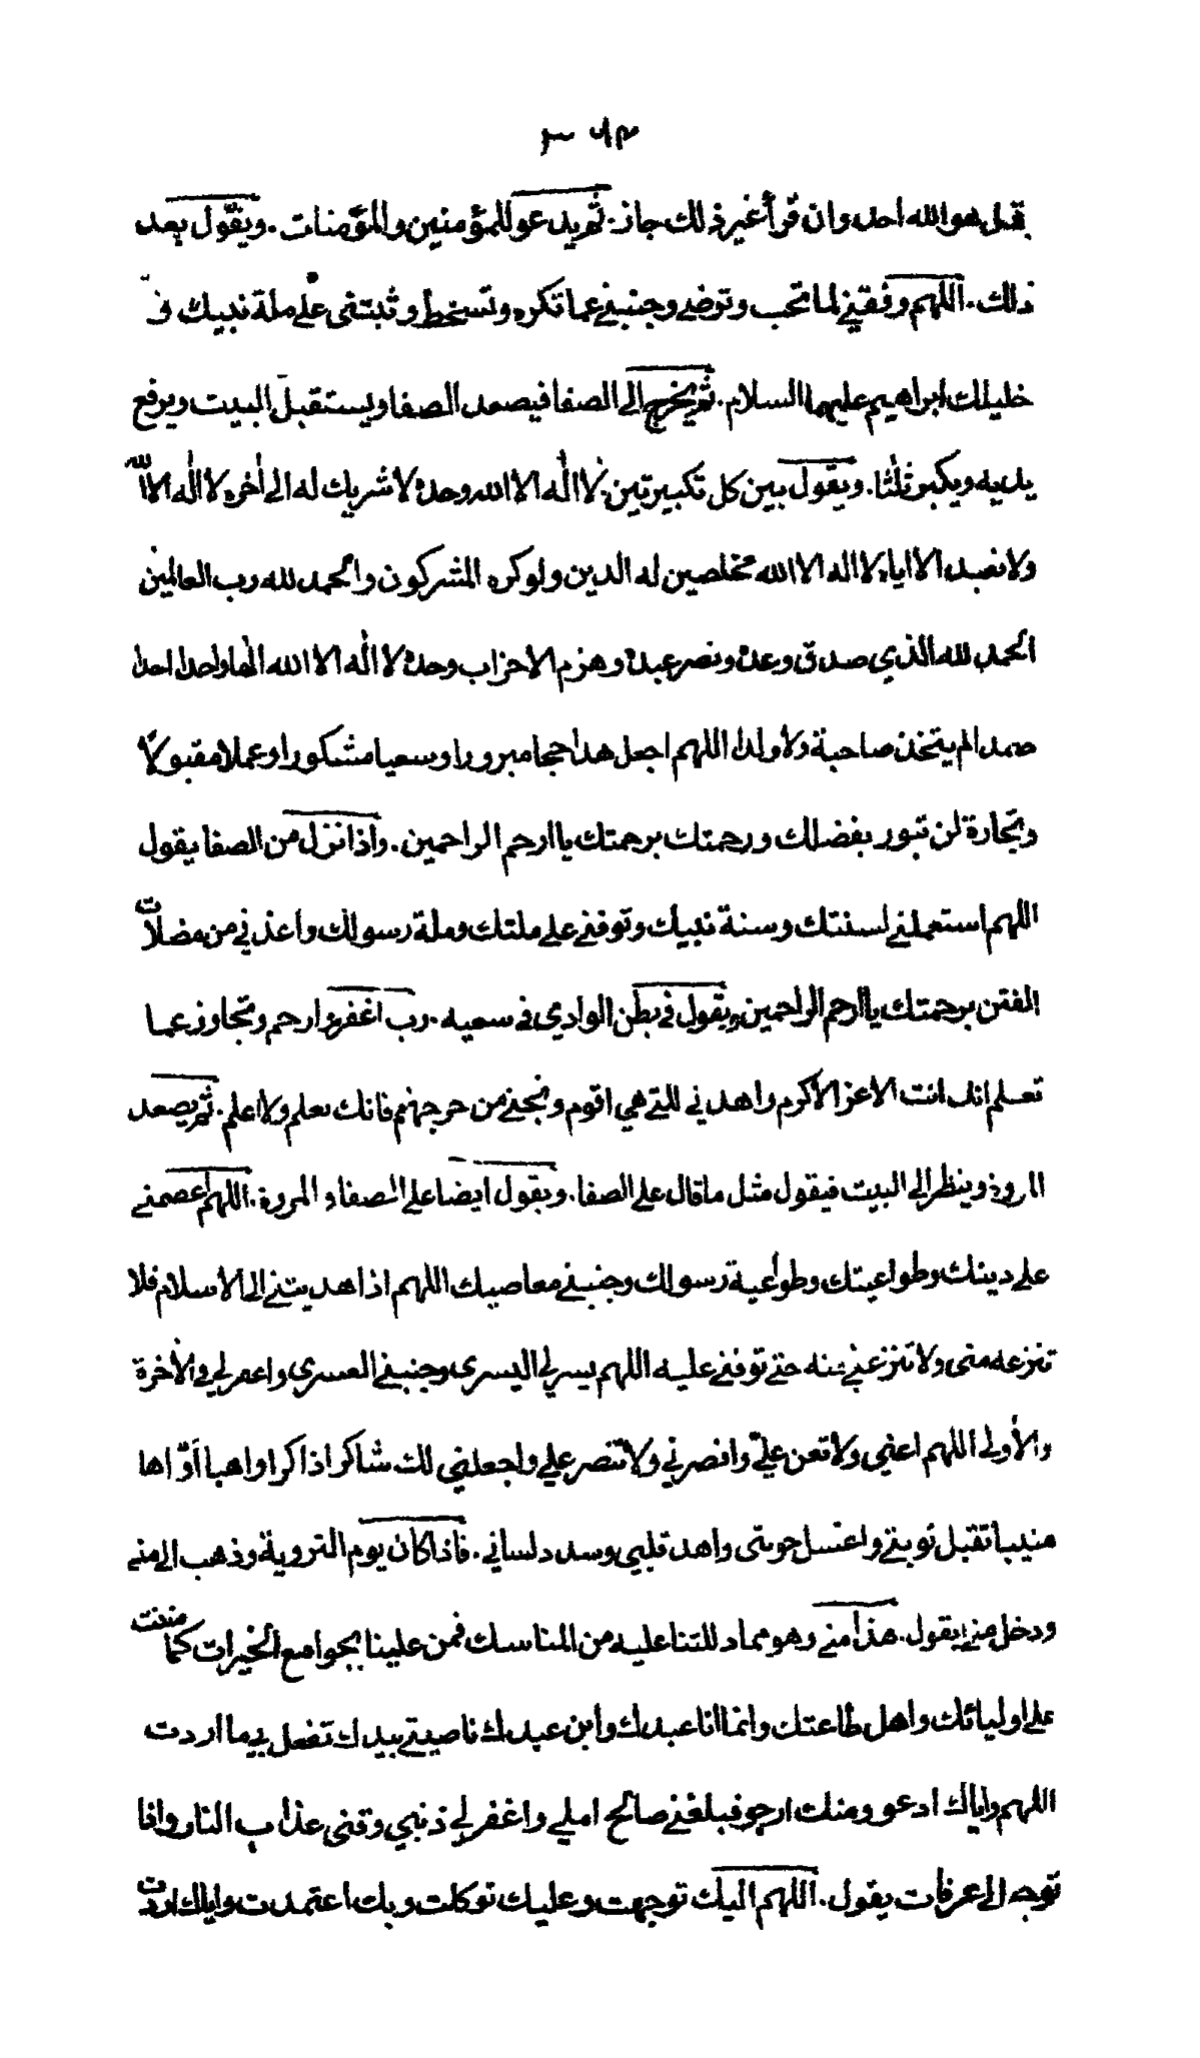 قل هو الله احد وان قرأ غير ذلك جاز. ثم يدعو للمؤمنين والمؤمنات. ويقول بعد
ذلك. اللهم وفقني لما تحب وترضى وجنبني عما تكره وتسخط وثبتني على ملة نبيك و
خليلك ابراهيم عليهما السلام. ثم يخرج الى الصفا فيصعد الصفا ويستقبل البيت ويرفع
يديه ويكبر ثلثا. ويقول بين كل تكبيرتين. لا اله الا الله وحده لا شريك له الى أخره لا اله الا الله
ولا نعبد الا اياه لا اله الا الله مخلصين له الدين ولو كره المشركون والحمد لله رب العالمين
الحمد لله الذي صدق وعده ونصر عبده وهزم الاحزاب وحده لا اله الا الله الها واحدا احدا
صمدا لم يتخذ صاحبة ولا ولدا اللهم اجعل هذا حجا مبرورا وسعيا مشكورا وعملا مقبولا
وتجارة لن تبور بفضلك ورحمتك برحمتك يا ارحم الراحمين. واذا نزل من الصفا يقول
اللهم استعملني لسنتك وسنة نبيك وتوفني على ملتك وملة رسولك واعذني من مضلات
الفتن برحمتك يا ارحم الراحمين ويقول في بطن الوادي في سعيه. رب اغفر وارحم وتجاوز عما
تعلم انك انت الاعز الاكرم واهدني للتي هي اقوم ونجني من حر جهنم فانك تعلم ولا اعلم. ثم يصعد
المروة وينظر الى البيت فيقول مثل ما قال على الصفا. ويقول ايضا على الصفا والمروة. اللهم اعصمني
على دينك وطواعيتك وطواعية رسولك وجنبني معاصيك اللهم اذا هديتني الى الاسلام فلا
تنزعه مني ولا تنزعني منه حتى توفني عليه اللهم يسر لي اليسرى وجنبني العسرى واغفر لي في الأخرة
والأولى اللهم اعني ولا تعن عليّ وانصرني ولا تنصر علي واجعلني لك شاكرا ذاكرا واهبا أوّاها
منيبا تقبل توبتي واغسل حوبتي واهد قلبي وسدد لساني. فاذا كان يوم التروية وذهب الى منى
ودخل منى يقول. هذا منى وهو مما دللتنا عليه من المناسك فمن علينا بجوامع الخيرات كما مننت
على اوليائك واهل طاعتك وانما انا عبدك وابن عبدك ناصيتي بيدك تفعل بي ما اردت
اللهم واياك ادعو ومنك ارجو فبلغني صالح املي واغفر لي ذنبي وقني عذاب النار واذا
توجه الى عرفات يقول. اللهم اليك توجهت وعليك توكلت وبك اعتمدت واياك اردت